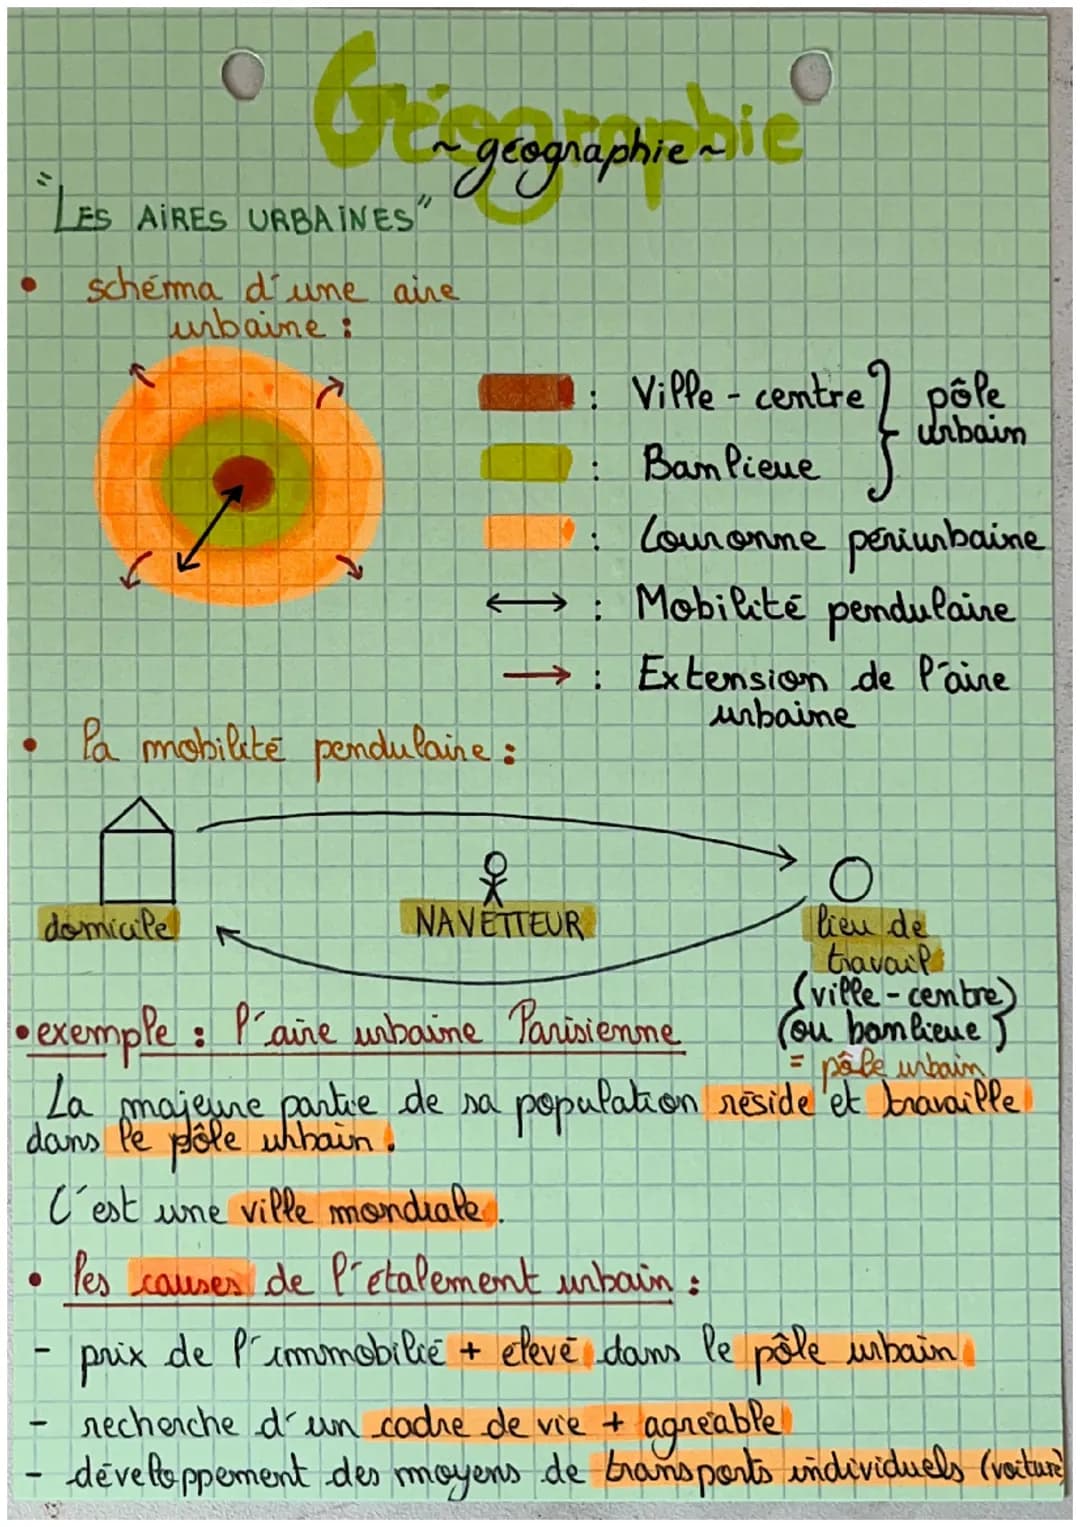 Géographie
~ géographie ~
"LES AIRES URBAINES"
• schéma d'une aire
urbaine :
: Ville - centre } pôle
urbain
: Banlieue
: Couronne périurbaine
: Mobilité pendulaire
: Extension de l'aire
urbaine
• la mobilité pendulaire :
domicile
NAVETTEUR
lieu de
travail
(ville - centre)
(ou banlieue)
= pôle urbain
• exemple : l'aire urbaine Parisienne
La majeure partie de sa population réside et travaille
dans le pôle urbain.
C'est une ville mondiale.
• les causes de l'étalement urbain :
- prix de l'immobilié + élevé dans le pôle urbain
- recherche d'un cadre de vie + agréable
- développement des moyens de transports individuels (voiture)